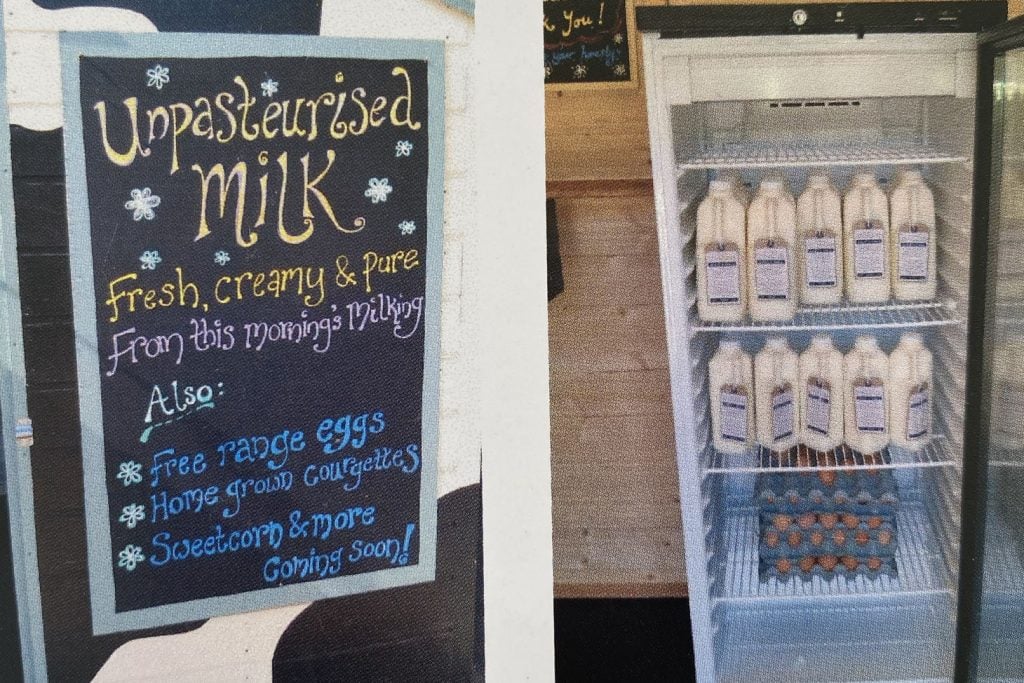 Unpasteurised
Milk
Fresh, creamy & Pure
From this morning's Milking
Also:
Free range eggs
Home grown Courgettes
Sweetcorn & more
Coming soon!
You!
your honesty